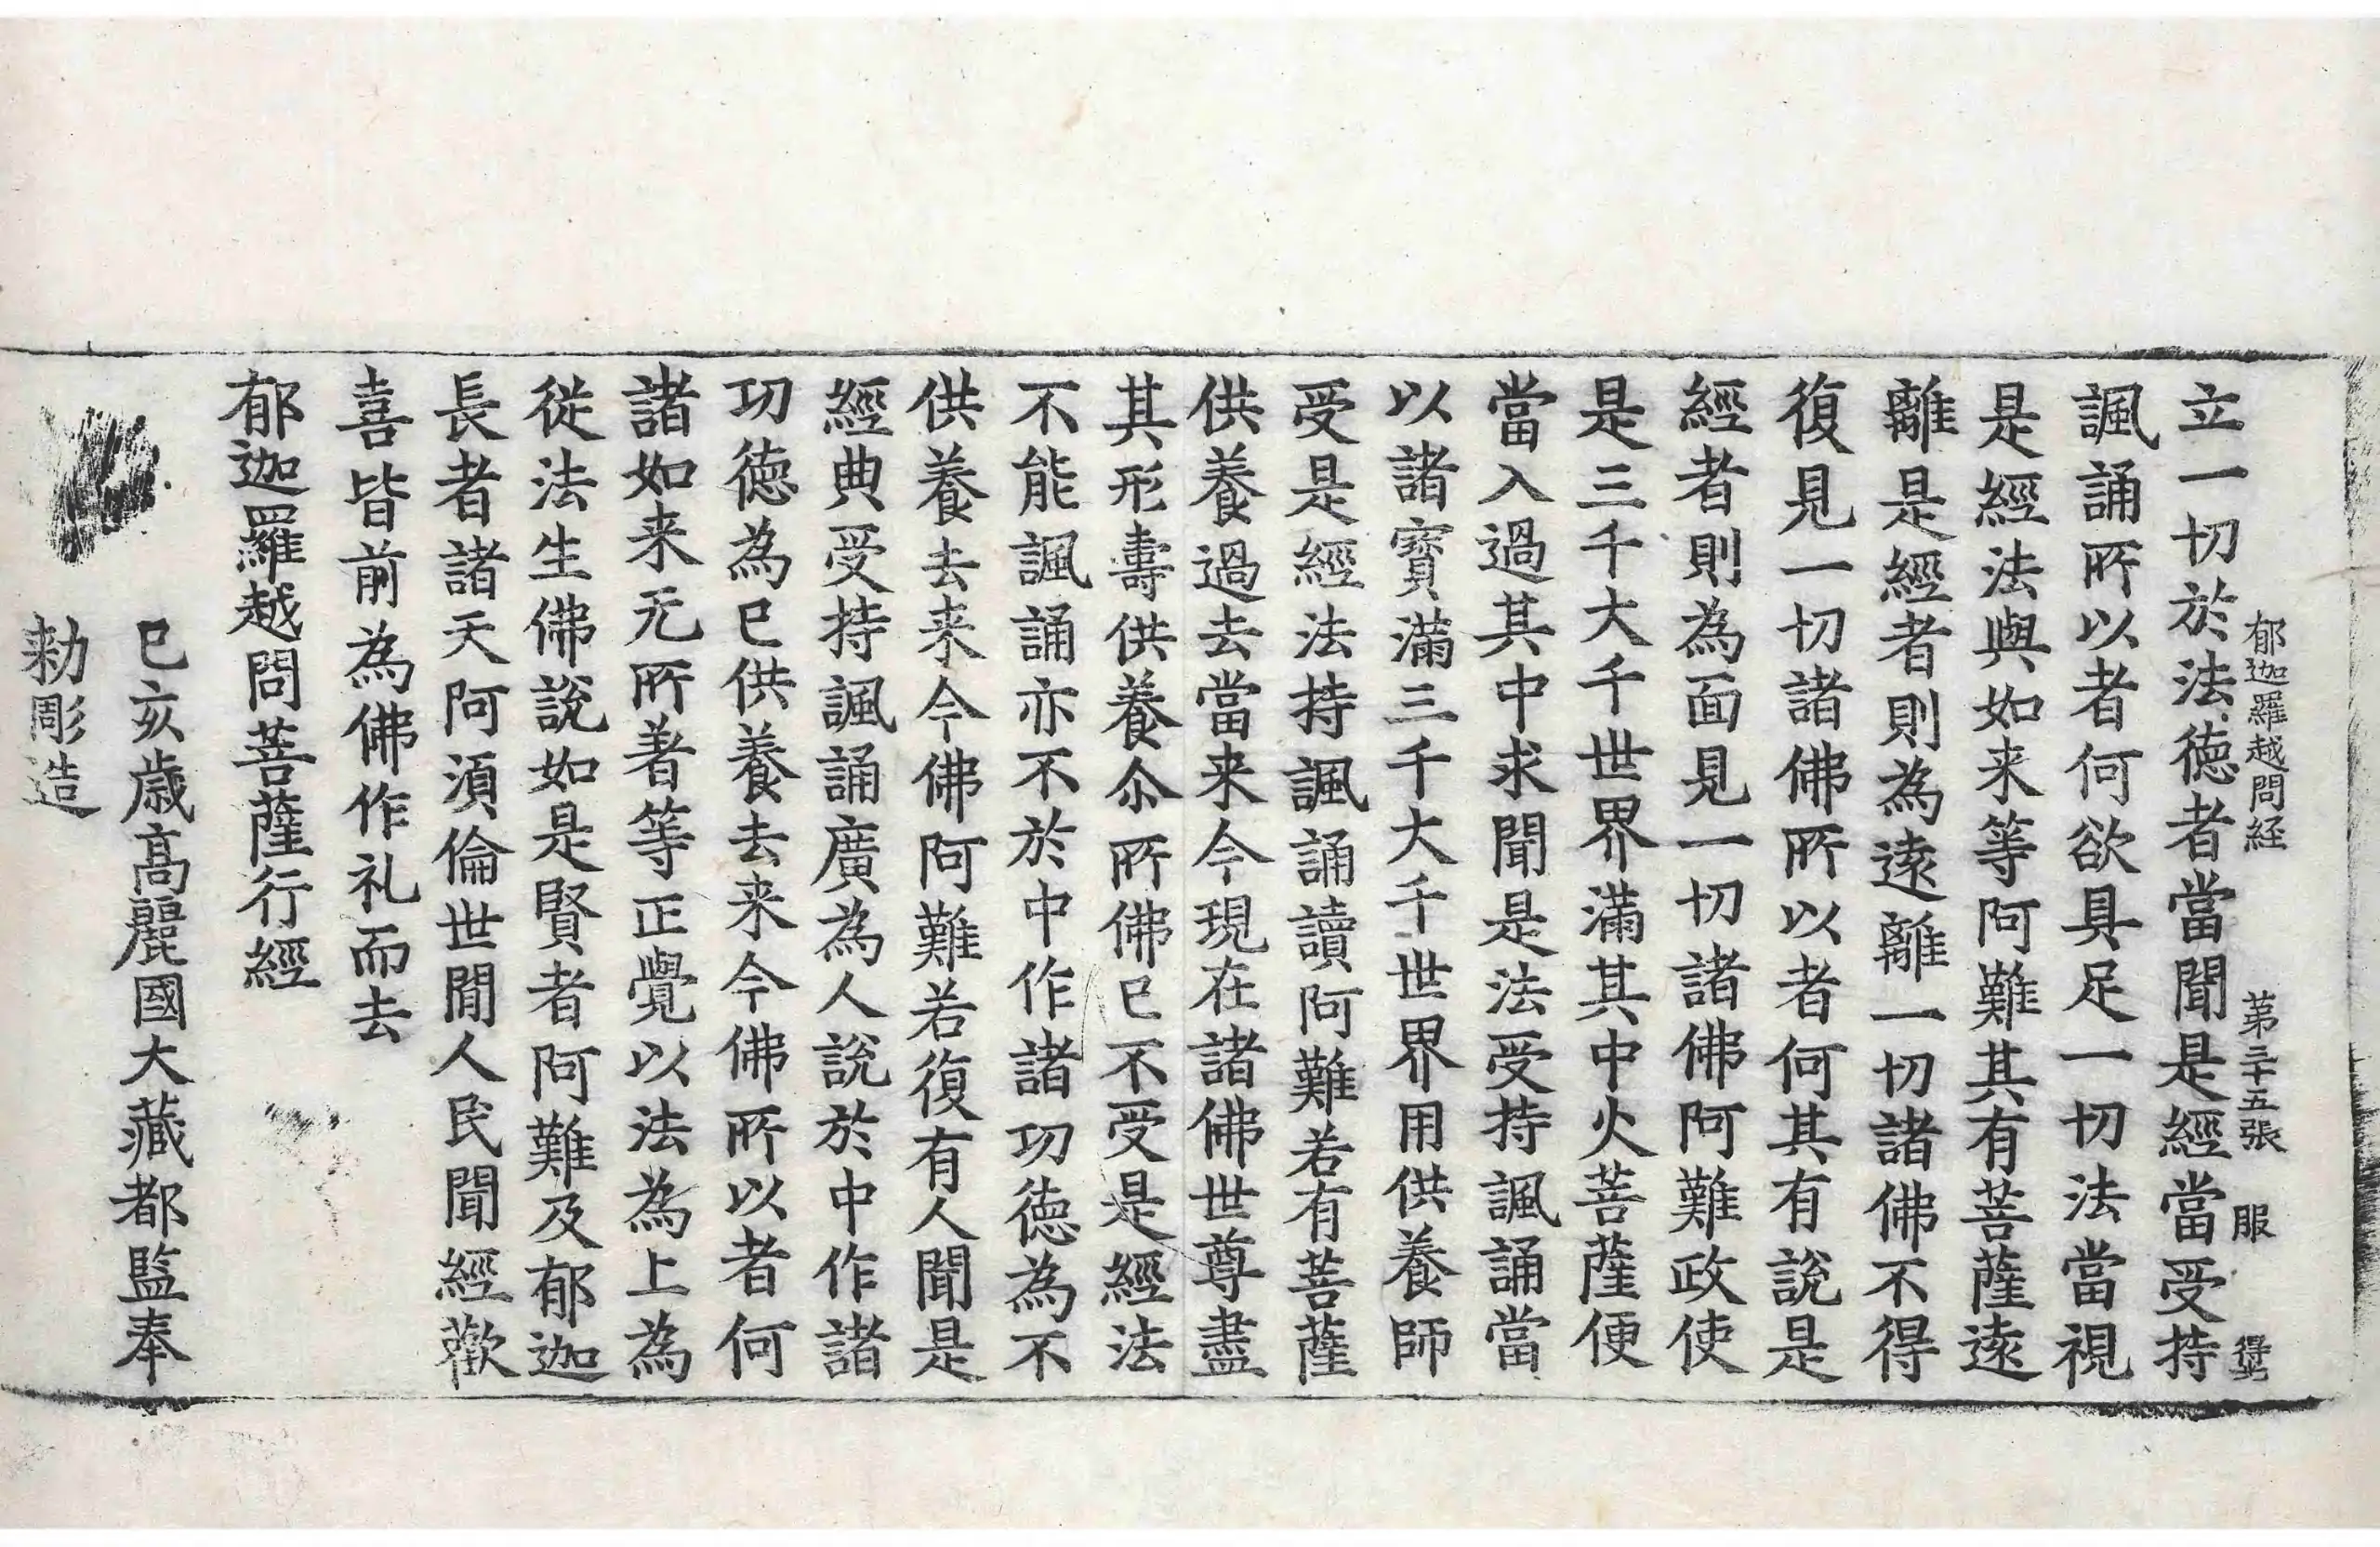 郁迦羅越問経 第三十五張 服
立一切於法德者當聞是經當受持
諷誦所以者何欲具足一切法當視
是經法與如来等阿難其有菩薩遠
離是經者則為遠離一切諸佛不得
復見一切諸佛所以者何其有說是
經者則為面見一切諸佛阿難政使
是三千大千世界滿其中火菩薩便
當入過其中求聞是法受持諷誦當
以諸寳滿三千大千世界用供養師
受是經法持諷誦讀阿難若有菩薩
供養過去當来今現在諸佛世尊盡
其形壽供養尒所佛已不受是經法
不能諷誦亦不於中作諸功德為不
供養去来今佛阿難若復有人聞是
經典受持諷誦廣為人說於中作諸
功德為已供養去来今佛所以者何
諸如来无所著等正覺以法為上為
從法生佛說如是賢者阿難及郁迦
長者諸天阿須倫世閒人民聞經歡
喜皆前為佛作礼而去
郁迦羅越問菩薩行經
已亥歳高麗國大藏都監奉
勑彫造